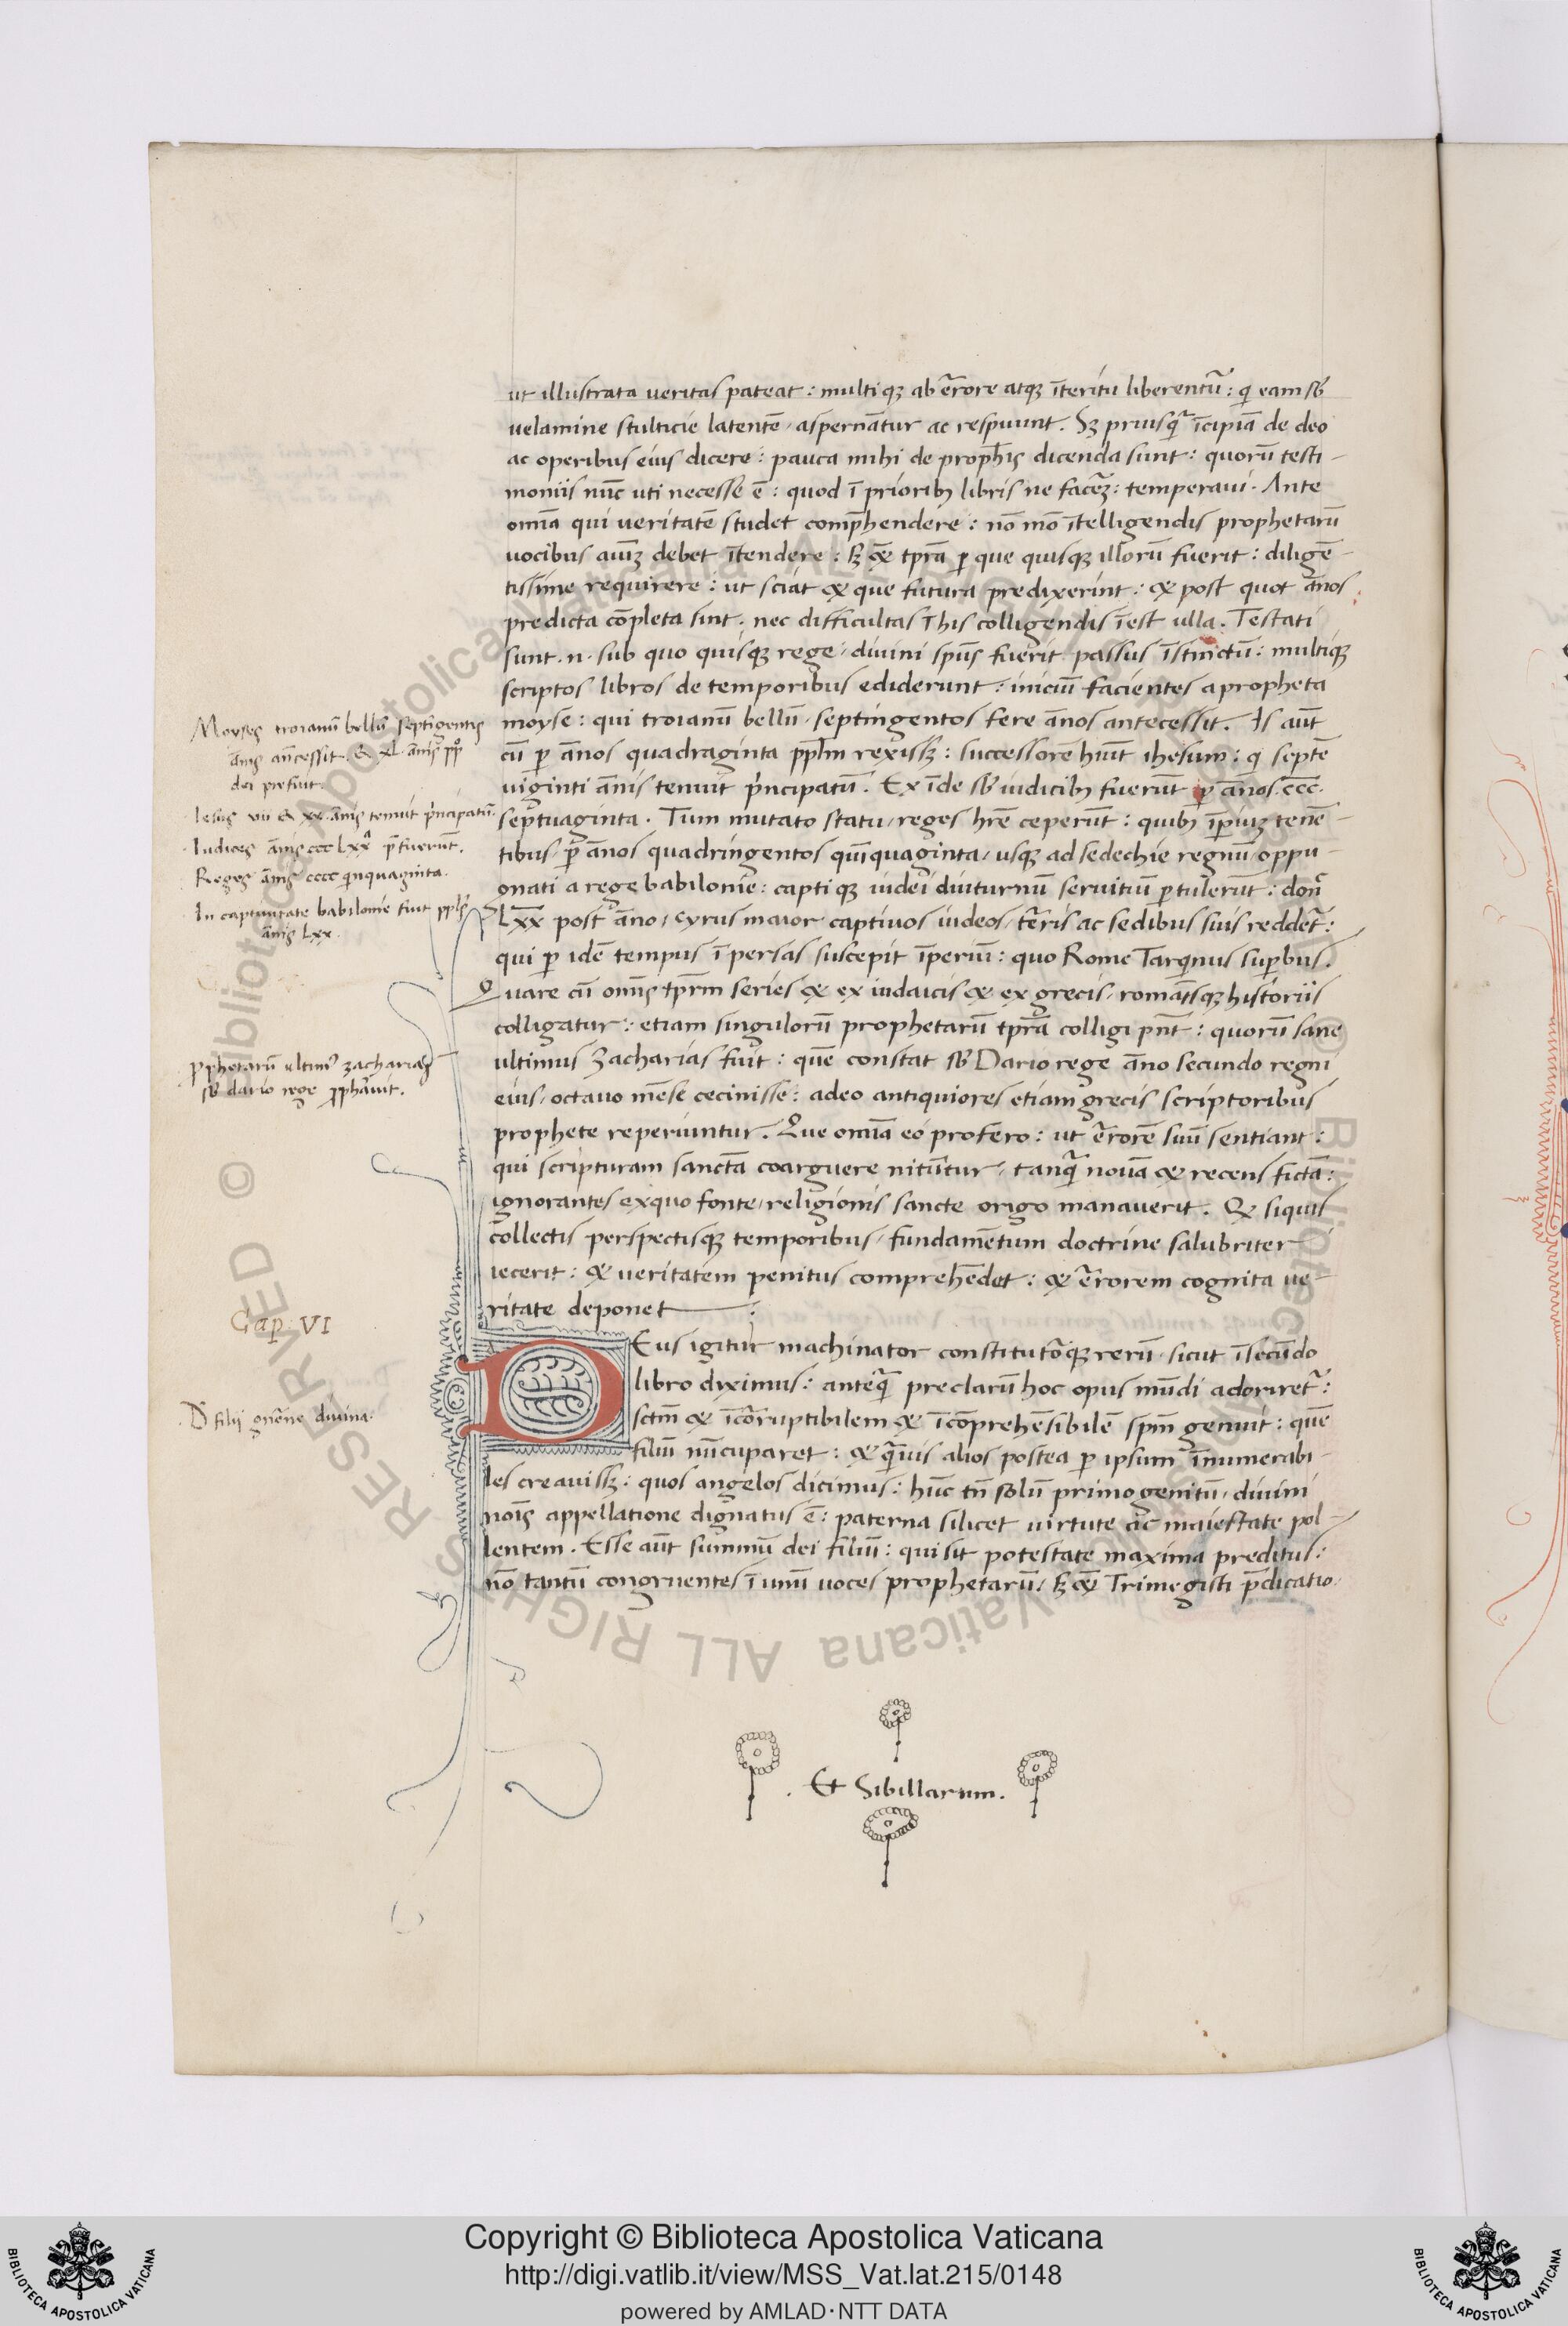 ut illustrata veritas pateat : multiqꝫ ab ērrore atqꝫ īteritu liberent᷑ : qͥ eam sƀ
velamine stulticie latentē / aspernātur ac respuunt . Sꝫ priusqᷓ īcipiā de deo
ac operibus eius dicere : pauca mihi de prophꝭ dicenda sunt : quorū testi-
moniis nūc uti necesse ē : quod ī prioribꝫ libris ne facerē : temperavi . Ante
omīa qui veritatē studet comp̄hendere : nō mō ītelligendis prophetarū
vocibus aīuꝫ debet ītendere : sꝫ & tp̄ra ꝑ que quisqꝫ illorū fuerit : diligē-
tissime requirere : ut sciat & que futura predixerint : & post quot ānos
predicta cōpleta sint . nec difficultas ī his colligendis īest ulla . Testati
sunt . n . sub quo quisqꝫ rege / divini spūs fuerit passus īstinctū : multiqꝫ
scriptos libros de temporibus ediderunt : iniciū facientes a propheta
moyse : qui troianū bellū / septingentos fere ānos antecessit . Is aūt
cū ꝑ ānos quadraginta pp̄lm rexissꝫ : successorē hūit ihesum : qͥ septē
& viginti ānis tenuit pͥncipatū . Ex īde sƀ iudicibꝫ fuerūt ꝑ ānos . cccc .
septuaginta . Tum mutato statu / reges hr̄e ceperūt : quibꝫ īperiuꝫ tenē-
tibus / ꝑ ānos quadringentos quīquaginta / usqꝫ ad sedechie regnū / oppu-
gnati a rege babilonie : captiqꝫ iudei diuturnū servitiū ꝑtulerūt : donͨ
Lxx post āno / cyrus maior captivos iudeos / terris ac sedibus suis reddet᷑ :
qui ꝑ idē tempus ī persas suscepit īperiū : quo Rome Tarqͥnus suꝑbus .
Quare cū om̄is tp̄rm series & ex iudaicis & ex grecis / romāisqꝫ historiis
colligatur : etiam singulorū prophetarū tp̄ra colligi pn̄t : quorū sane
ultimus Zacharias fuit : quē constat sƀ Dario rege āno secundo regni
eius / octavo mēse cecinisse : adeo antiquiores etiam grecis scriptoribus
prophete reperiuntur . Que omīa eo profero : ut ērrorē suū sentiant :
qui scripturam sanctā coarguere nitūtur / tanqᷓ novā & recens fictā :
ignorantes ex quo fonte / religionis sancte origo manaverit . Qͩ siquis
collectis perspectisqꝫ temporibus / fundamētum doctrine salubriter
iecerit : & veritatem penitus comprehēdet : & ērrorem cognita ve-
ritate deponet :
Moyses troianū bellū septigentis
ānis an̄cessit & xL . ānis ppͦ
dei prefuit .
Iesus vii & xx . ānis tenuit pͥncipatū .
Iudices ānis ccc Lxxᷓ p̄fuerūt .
Reges ānis cccc qͥnquaginta .
In captivitate babilonie fuit ppl̄s
ānis Lxx .
ꝓphetarū ultimꝰ zacharias
sƀ dario rege ꝓph̄avit .
Cap . VI
D filij gn̄one divina .
DEus igitur machinator constitutorqꝫ rerū / sicut ī secūdo
libro diximus : anteqᷓ preclarū hoc opus mūdi adoriret᷑ :
sctm̄ & īcorruptibilem & īcōprehēsibilē spm̄ genuit : quē
filiū nūcuparet : & qᷓuis alios postea ꝑ ipsum īnumerabi-
les creavissꝫ : quos angelos dicimus : hūc tn̄ solū primogenitū / divini
noīs appellatione dignatus ē : paterna silicet virtute ac maiestate pol-
lentem . Esse aūt summū dei filiū : qui sit potestate maxima preditus :
nō tantū congruentes ī unū voces prophetarū / sꝫ & Trimegisti p̄dicatio
. Et Sibillarum .
Copyright © Biblioteca Apostolica Vaticana
http://digi.vatlib.it/view/MSS_Vat.lat.215/0148
powered by AMLAD·NTT DATA
BIBLIOTECA APOSTOLICA VATICANA
BIBLIOTECA APOSTOLICA VATICANA
© Biblioteca Apostolica Vaticana ALL RIGHTS RESERVED